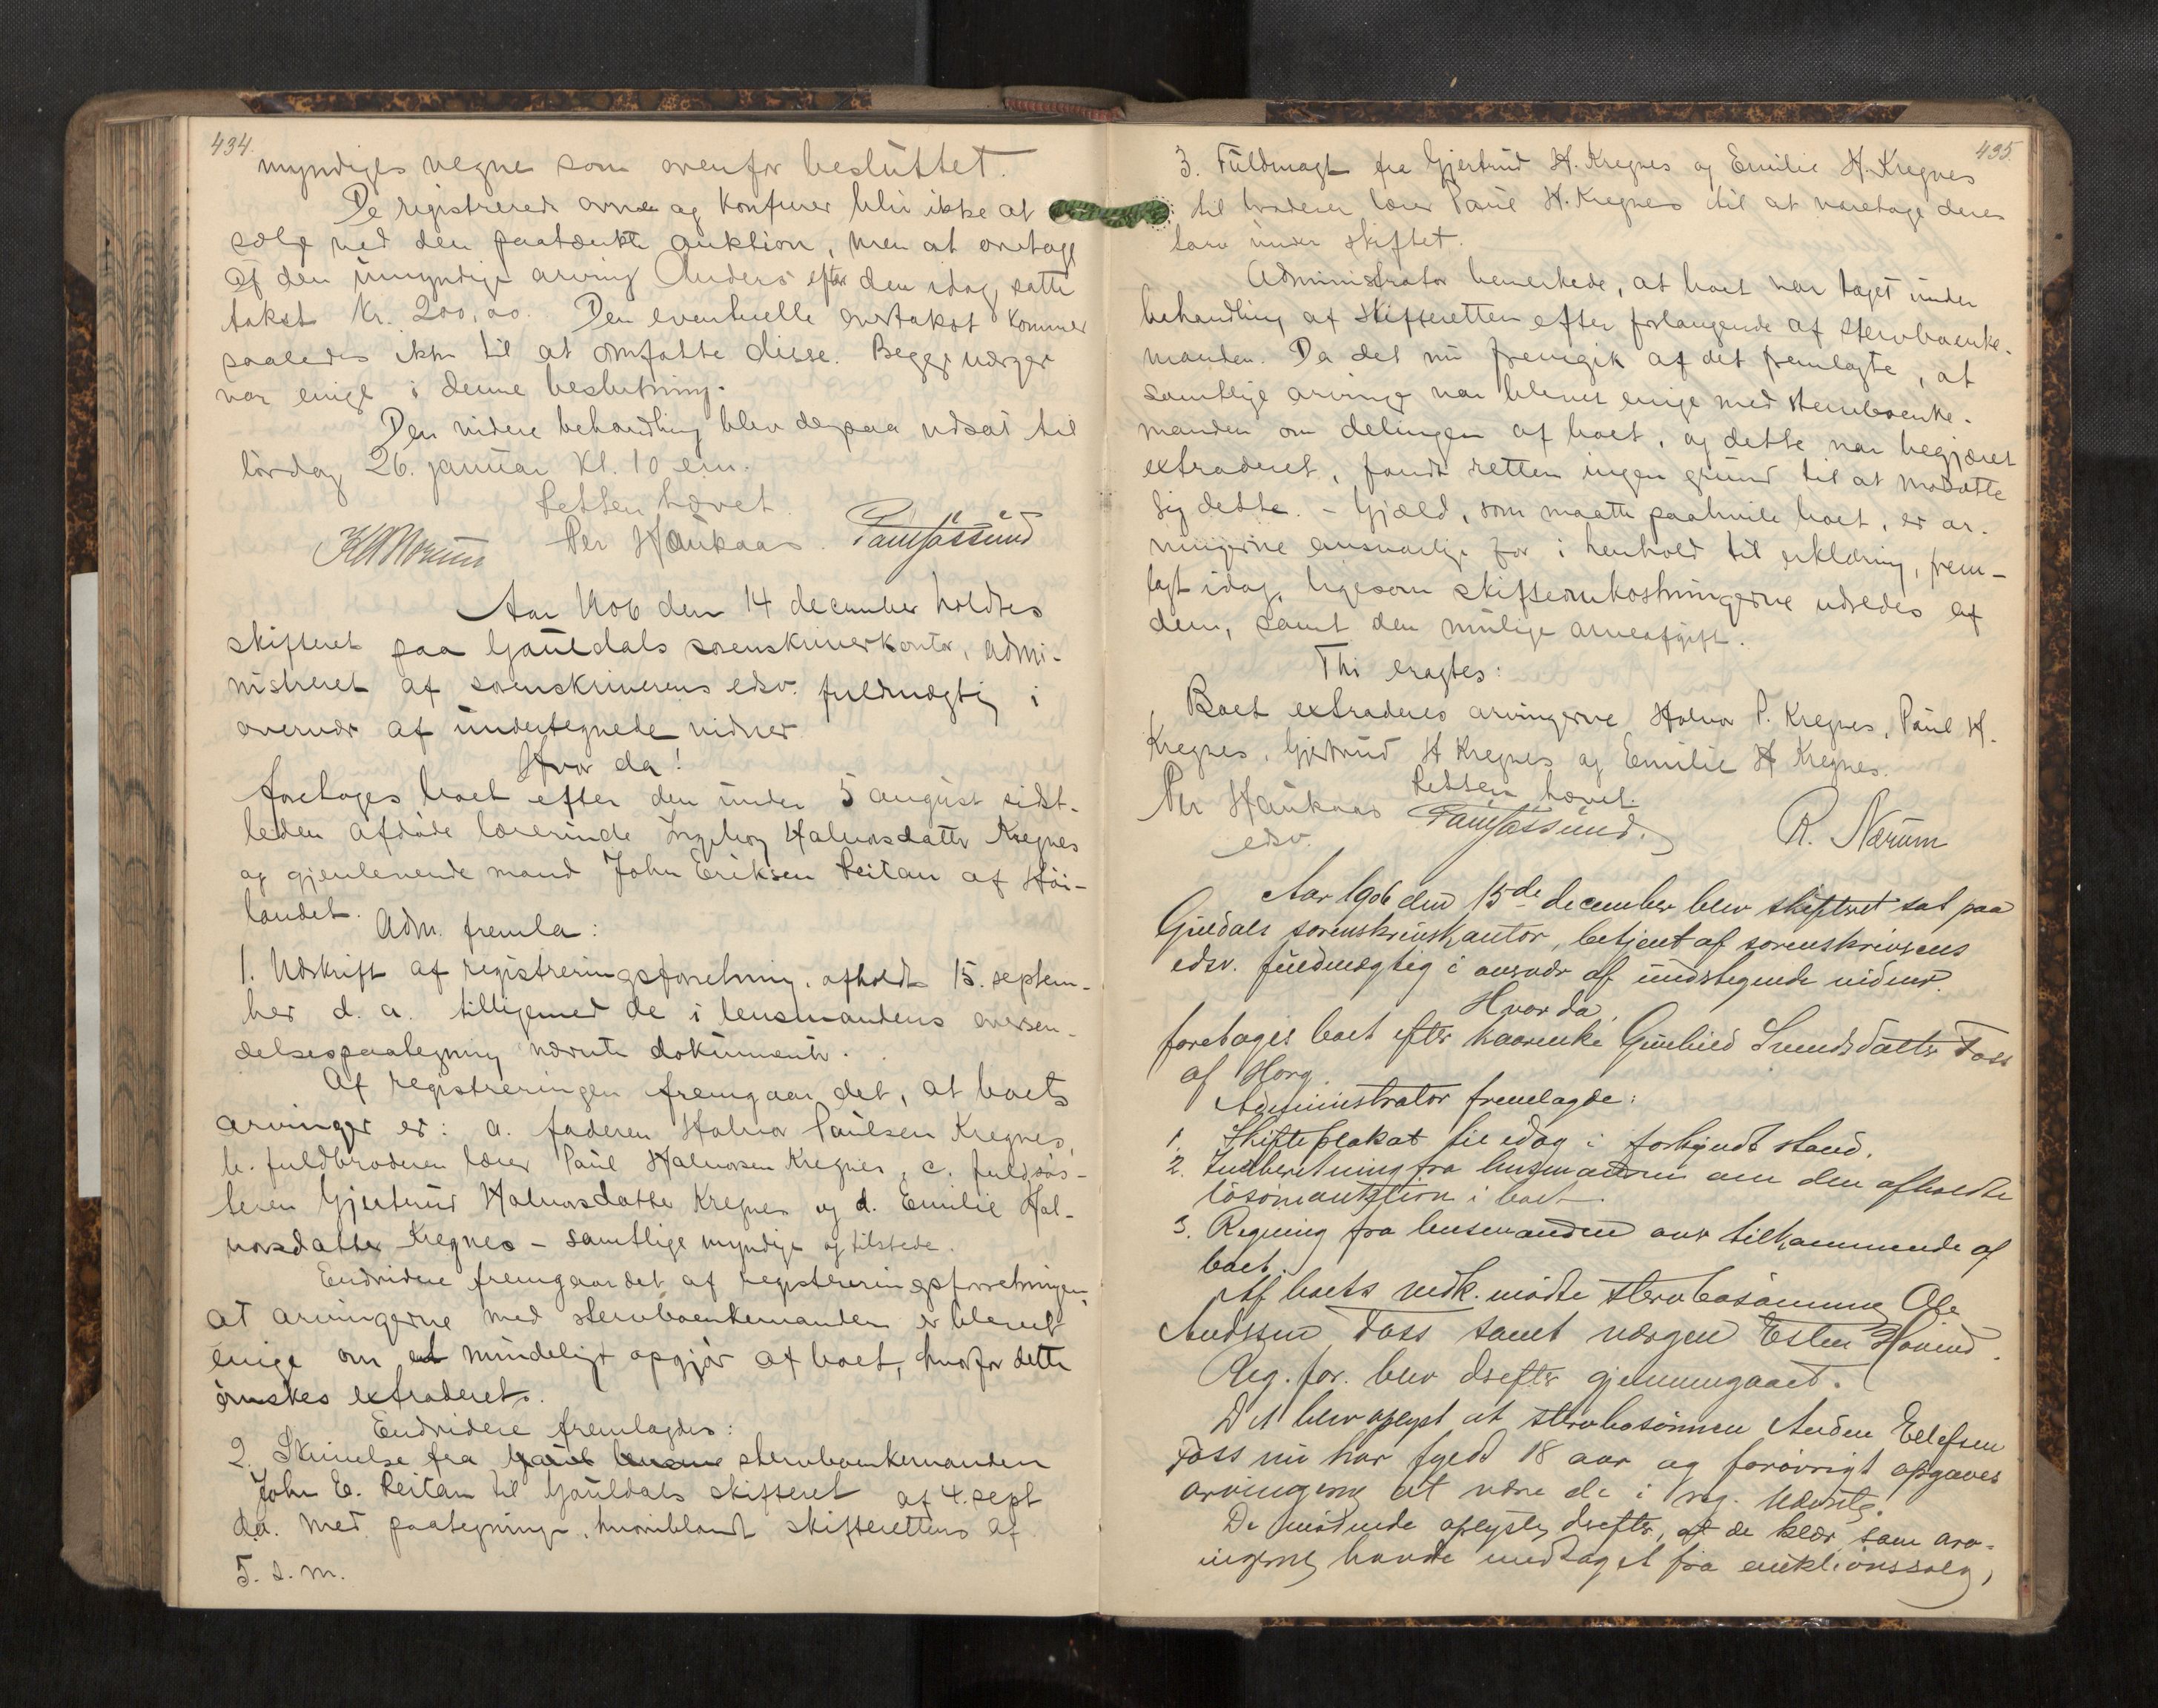 434.
myndiges vegne som ovenfor besluttet.
De registrerede ovne og komfurer blir ikke at
sælge ved den paatænkte auktion, men at overtage
af den umyndige arving Anders efter den idag satte
takst kr. 200,00. Den eventuelle overtakst kommer
saaledes ikke til at omfatte disse. Begge værger
var enige i denne beslutning.
Den videre behandling blev derpaa udsat til
lørdag 26. januar kl. 10 em.
Retten hævet.
Per Haukaas.
Aar 1906 den 14 december holdtes
skifteret paa Gauldals sorenskriverkontor, admi-
nistreret af sorenskriverens edsv. fuldmægtig i
overvær af undertegnede vidner
Hvor da!
foretoges boet efter den under 5 august sidst-
leden afdøde lærerinde Ingeborg Halvorsdatter Kregnes
og gjenlevende mand John Eriksen Reitan af Høi-
landet.
Adm. fremla:
1. Udskrift af registreringsforretning. afholdt 15. septem-
ber d. a. tilligemed de i lensmandens oversen-
delsespaategning nævnte dokumenter.
Af registreringen fremgaar det, at boets
arvinger er: a. faderen Halvor Paulsen Kregnes,
b. fuldbroderen lærer Paul Halvorsen Kregnes, c. fuldsøs-
teren Gjertrud Halvorsdatter Kregnes og d. Emilie Hal-
vorsdatter Kregnes - samtlige myndige og tilstede.
Endvidere fremgaar det af registreringsforretningen,
at arvingerne med stervboenkemanden er blevet
enige om et mindeligt opgjør af boet, hvorfor dette
ønskes extraderet.
Endvidere fremlagdes:
2. Skrivelse fra stervboenkemanden
John E. Reitan til Gauldals skifteret af 4. sept
d.a. med paategninger, hvoriblandt skifterettens af
5. s. m.
435.
3. Fuldmagt fra Gjertrud H. Kregnes og Emilie H. Kregnes
til broderen lærer Paul H. Kregnes til at varetage deres
tarv under skiftet.
Administrator bemerkede, at boet var taget under
behandling af skifteretten efter forlangende af stervboenke-
manden. Da det nu fremgik af det fremlagte, at
samtlige arvinger var blevet enige med stervboenke-
manden om delingen af boet, og dette var begjæret
extraderet, fandt retten ingen grund til at modsætte
sig dette. - Gjæld, som maatte paahvile boet, er ar-
vingerne ansvarlige for i henhold til erklæring, frem-
lagt idag, ligesom skifteomkostningerne udredes af
dem, samt den mulige arveafgift.
Thi eragtes:
Boet extraderes arvingerne Halvor P. Kregnes, Paul H.
Kregnes, Gjertrud H Kregnes og Emilie H Kregnes.
Retten hævet.
Per Haukaas
edsv.
R. Nærum
Aar 1906 den 15de december blev skifteret sat paa
Guldals sorenskriverkontor, betjent af sorenskriverens
edsv. fuldmægtig i overvær af undertegnede vidner.
Hvor da,
foretoges boet efter kaarenke Gunhild Svendsdatter Foss
af Horg.
Administrator fremlagde:
1. Skifteplakat til idag i forkyndt stand.
2. Indberetning fra lensmanden om den afholdte
løsøreauktion i boet.
3. Regning fra lensmanden over tilkommende af
boet.
Af boets vedk. mødte stervbosønnen Ole
Andersen Foss samt værgen Esten Hovind.
Reg. for. blev derefter gjennemgaaet.
Det blev oplyst at stervbosønnen Anders Ellefsen
Foss nu har fyldt 18 aar og forøvrigt opgaves
arvingerne at være de i reg. nævnte.
De mødende oplyste derefter, at de klær, som arv-
ingerne havde undtaget fra auktionssalg,